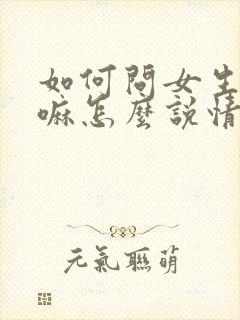 如何問女生
嘛怎麼說情
元氣聯萌